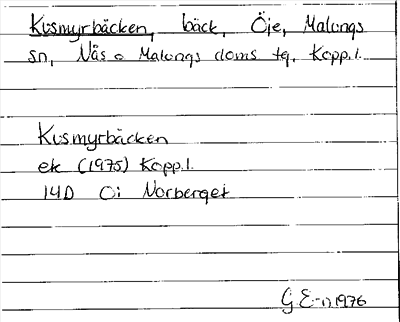 Kusmyrbäcken, bäck, Öje, Malungs
sn, Näs o Malungs doms tg, Kopp.l.
Kusmyrbäcken
ek (1975) Kopp.l.
14D 0i Norberget
G E-n 1976